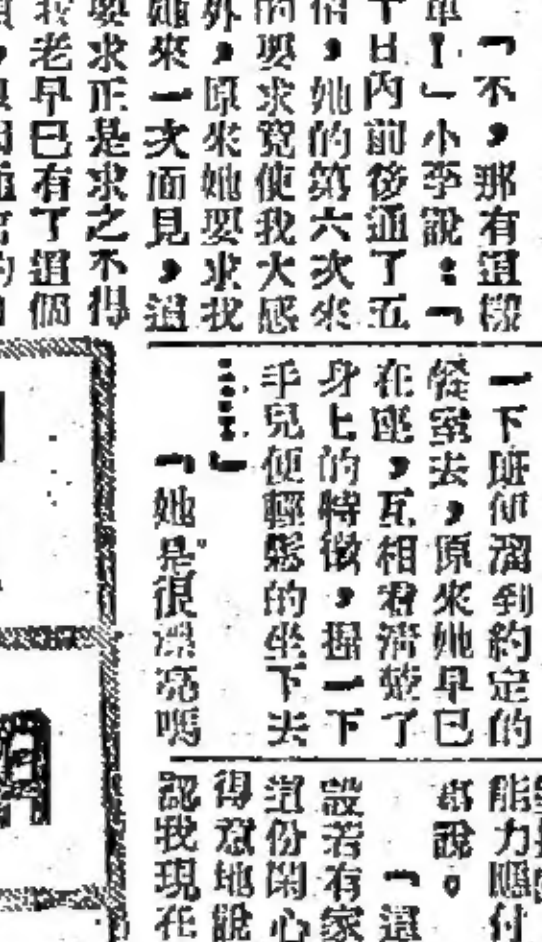 「不，那有這樣
單！」小李說：「
十日內前後通了五
信，她的第六次來
的要求竟使我大感
外，原來她要求我
她來一次面見，這
要求正是求之不得
我老早已有了這個
一下班便溜到約定的
餐室去，原來她早已
在座，互相看清楚了
身上的特徵，握一下
手兒便輕鬆的坐下去
……」
「她是很漂亮嗎
能力應付
說。
「這
設若有家
這份閑心
得意地說
認我現在